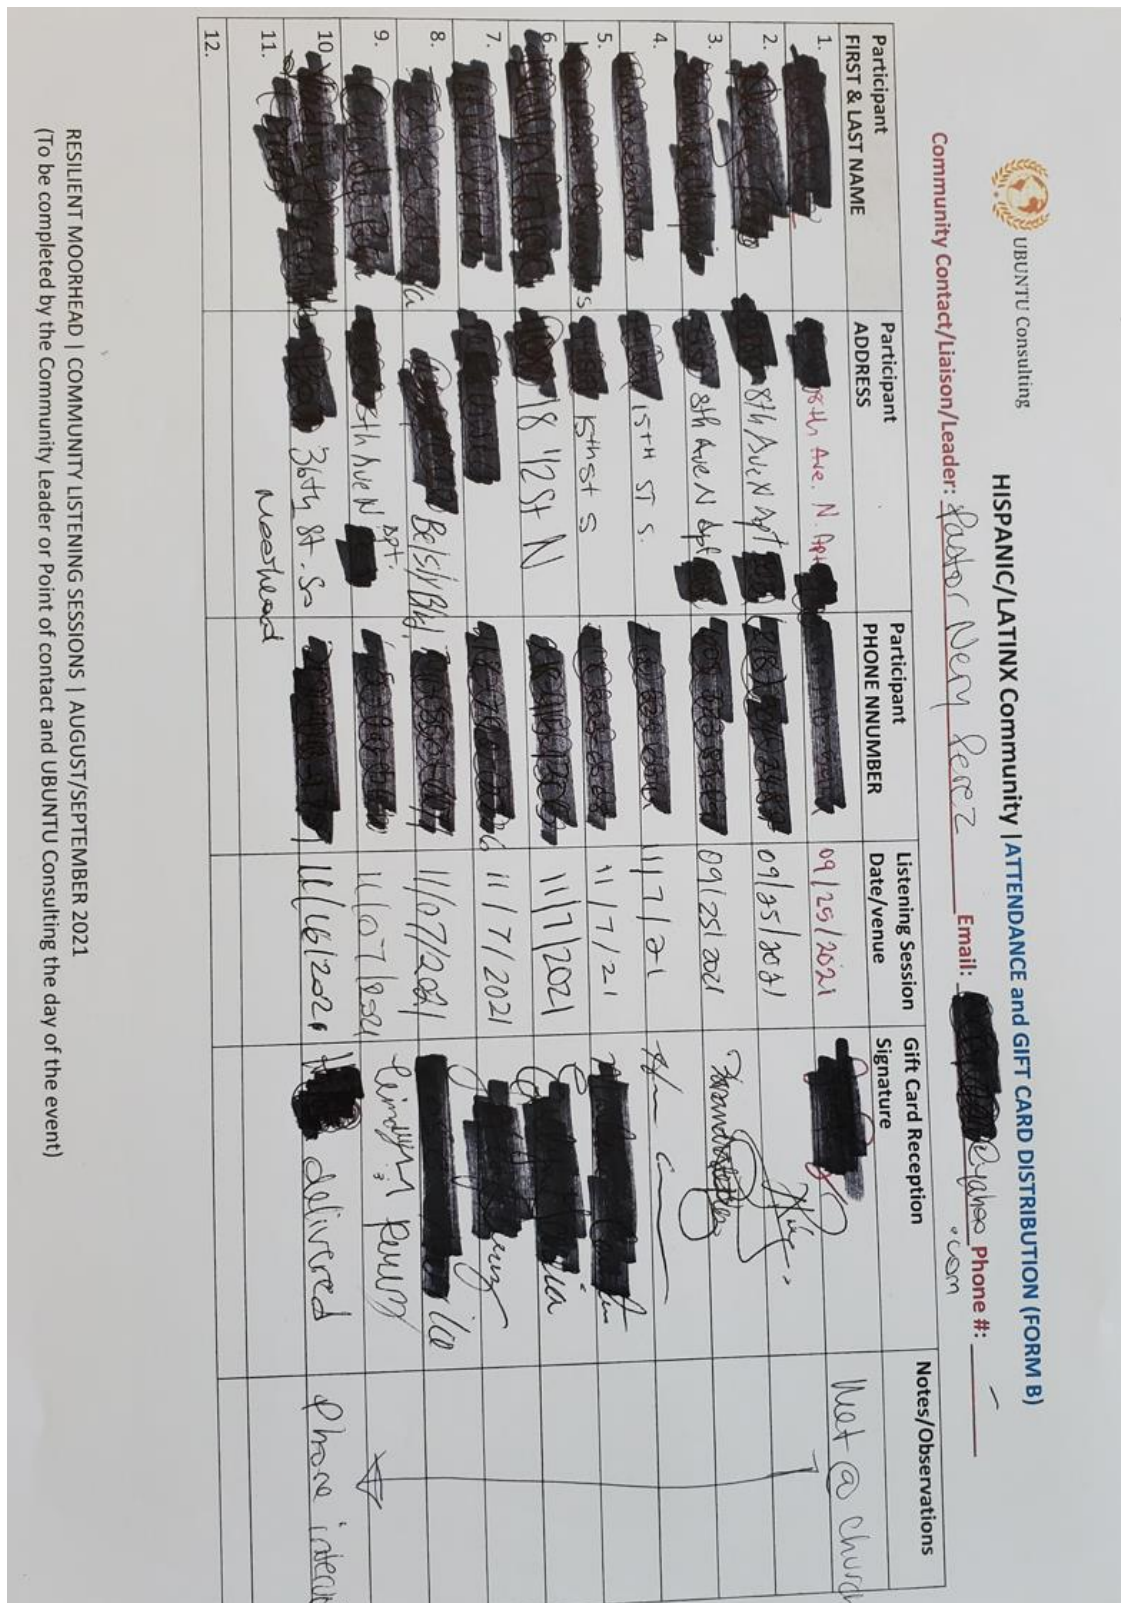 UBUNTU Consulting
HISPANIC/LATINX Community | ATTENDANCE and GIFT CARD DISTRIBUTION (FORM B)
Community Contact/Liaison/Leader: Pastor Nery Perez Email: @yahoo .com Phone #: –
Participant FIRST & LAST NAME
Participant ADDRESS
Participant PHONE NNUMBER
Listening Session Date/venue
Gift Card Reception Signature
Notes/Observations
1. 8th Ave. N. Apt 09/25/2021 Meet @ church
2. 8th Ave N Apt 09/25/2021
3. 8th Ave N Apt 09/25/2021
4. 15th ST S. 11/7/21
5. 15th St S 11/7/21
6. 18 1/2 St N 11/7/2021
7. 11/7/2021
8. 11/07/2021
9. 8th Ave N Apt. 11/07/2021
10. 36th St. So 11/16/2021 delivered Phone
11. Moorhead
12.
RESILIENT MOORHEAD | COMMUNITY LISTENING SESSIONS | AUGUST/SEPTEMBER 2021
(To be completed by the Community Leader or Point of contact and UBUNTU Consulting the day of the event)